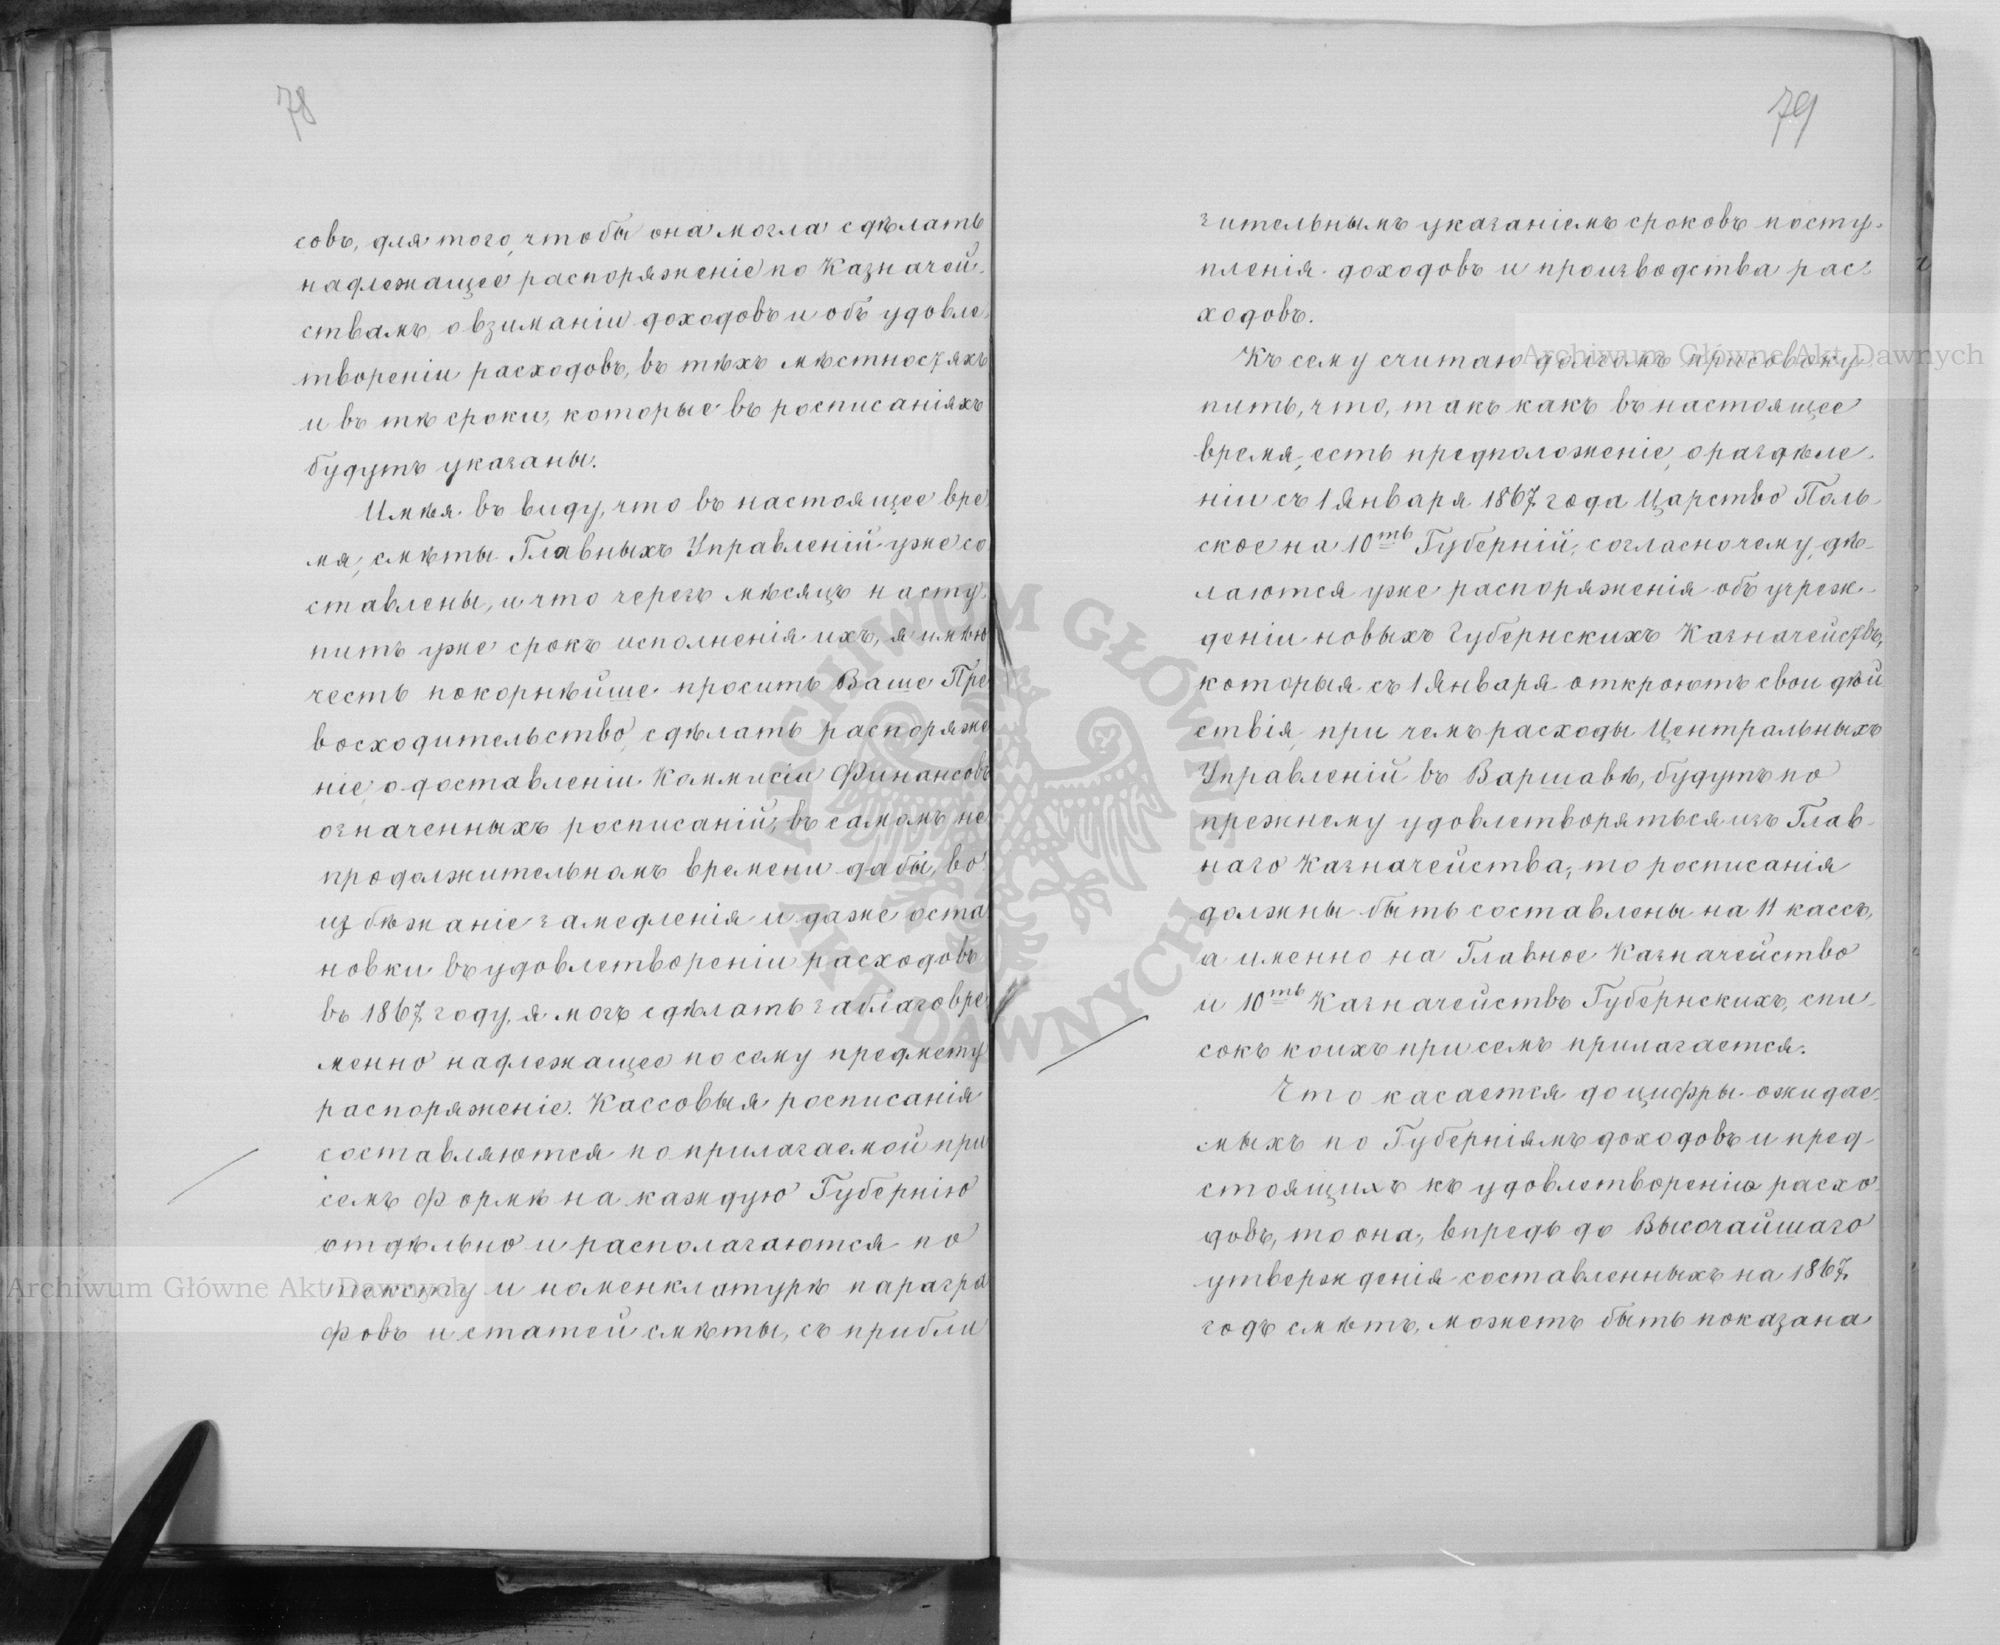 78
совъ, для того, чтобы она могла сдѣлать
надлежащее распоряженіе по Казначей-
ствамъ о взиманіи доходовъ и объ удовле-
твореніи расходовъ, въ тѣхъ мѣстностяхъ
и въ тѣ сроки, которые въ росписаніяхъ
будутъ указаны.
Имѣя въ виду, что въ настоящее вре-
мя, смѣты Главныхъ Управленій уже со
ставлены, и что черезъ мѣсяцъ насту-
питъ уже срокъ исполненія ихъ, я имѣю
честь покорнѣйше просить Ваше Пре
восходительство, сдѣлать распоряже
ніе, о доставленіи Коммисіи Финансовъ
означенныхъ росписаній, въ самомъ не
продолжительномъ времени дабы, во
избѣжаніе замедленія и даже оста
новки въ удовлетвореніи расходовъ
въ 1867 году, я могъ сдѣлать заблаговре
менно надлежащее по сему предмету
распоряженіе. Кассовыя росписанія
составляются по прилагаемой при
семъ формѣ на каждую Губернію
отдѣльно и располагаются по
тексту и номенклатурѣ парагра
фовъ и статей смѣты, съ прибли
79
зительнымъ указаніемъ сроковъ посту-
пленія доходовъ и производства рас-
ходовъ.
Къ сему считаю долгомъ присовоку
пить, что, такъ какъ въ настоящее
время, есть предположеніе, о раздѣле-
ніи съ 1 Января 1867 года Царство Поль-
ское на 10ть Губерній, согласно чему, дѣ-
лаются уже распоряженія объ учреж-
деніи новыхъ Губернскихъ Казначействъ,
которыя съ 1 Января откроютъ свои дѣй
ствія, при чемъ расходы Центральныхъ
Управленій въ Варшавѣ, будутъ по
прежнему удовлетворяться изъ Глав-
наго Казначейства, то росписанія
должны быть составлены на 11 кассъ,
а именно на Главное Казначейство
и 10ть Казначействъ Губернскихъ, спи-
сокъ коихъ при семъ прилагается.
Что касается до цифры ожидае-
мыхъ по Губерніямъ доходовъ и пред-
стоящихъ къ удовлетворенію расхо-
довъ, то она, впредь до Высочайшаго
утвержденія составленныхъ на 1867
годъ смѣтъ, можетъ быть показана
Archiwum Główne Akt Dawnych
Archiwum Główne Akt Dawnych
ARCHIWUM GŁÓWNE AKT DAWNYCH